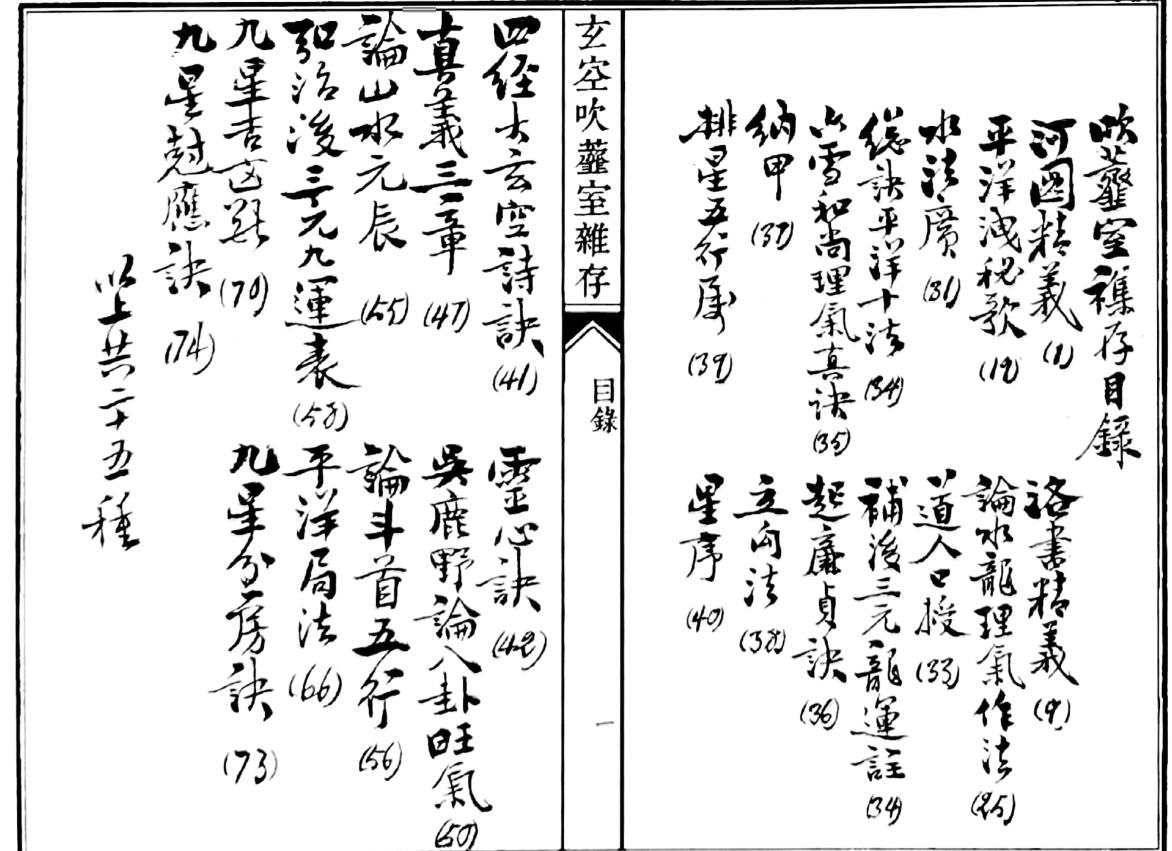 吹虀室襍存目錄
河圖精義 (1) 洛書精義 (9)
平洋洩秘歌 (12) 論水龍理氣作法 (25)
水法廣 (31) 道人口授 (33)
總訣平洋十法 (34) 補後三元龍運註 (34)
六雪和尚理氣真訣 (35) 起廉貞訣 (36)
納甲 (37) 立向法 (38)
排星五行屬 (39) 星序 (40)
玄空吹虀室雜存
目錄
一
四經大玄空詩訣 (41) 靈心訣 (42)
真義三章 (47) 吳鹿野論八卦旺氣 (50)
論山水元辰 (55) 論斗首五行 (56)
弘治後三元九運表 (58) 平洋局法 (66)
九星吉凶斷 (70) 九星分房訣 (73)
九星尅應訣 (74)
以上共二十五種